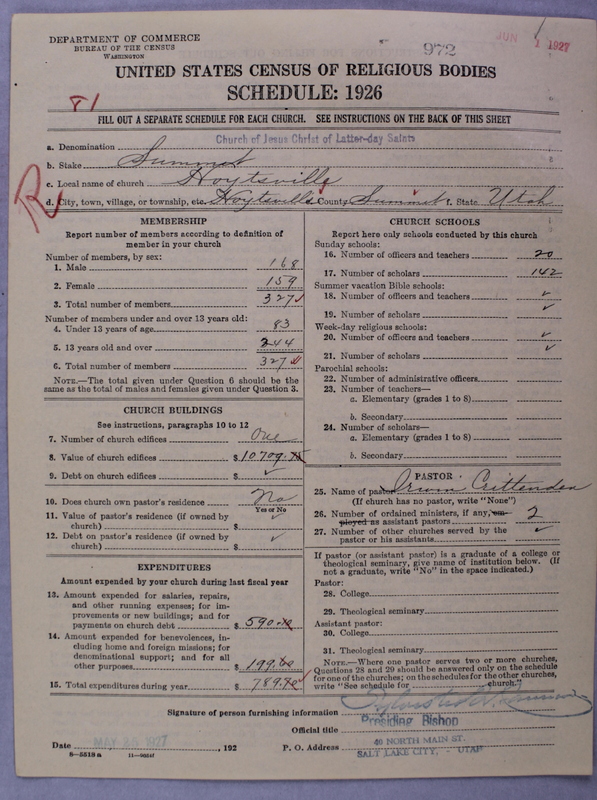 DEPARTMENT OF COMMERCE
BUREAU OF THE CENSUS
WASHINGTON
972
JUN 1 1927
UNITED STATES CENSUS OF RELIGIOUS BODIES
SCHEDULE: 1926
81
FILL OUT A SEPARATE SCHEDULE FOR EACH CHURCH. SEE INSTRUCTIONS ON THE BACK OF THIS SHEET
a. Denomination Church of Jesus Christ of Latter-day Saints
b. Stake Summit
c. Local name of church Hoytsville
R
d. City, town, village, or township, etc. Hoytsville County Summit f. State Utah
MEMBERSHIP
Report number of members according to definition of
member in your church
Number of members, by sex:
1. Male 168
2. Female 159
3. Total number of members 327
Number of members under and over 13 years old:
4. Under 13 years of age 83
5. 13 years old and over 244
6. Total number of members 327
NOTE.—The total given under Question 6 should be the
same as the total of males and females given under Question 3.
CHURCH BUILDINGS
See instructions, paragraphs 10 to 12
7. Number of church edifices One
8. Value of church edifices $10709.75
9. Debt on church edifices $
10. Does church own pastor's residence No
Yes or No
11. Value of pastor's residence (if owned by
church) $
12. Debt on pastor's residence (if owned by
church) $
EXPENDITURES
Amount expended by your church during last fiscal year
13. Amount expended for salaries, repairs,
and other running expenses; for im-
provements or new buildings; and for
payments on church debt $ 590.
14. Amount expended for benevolences, in-
cluding home and foreign missions; for
denominational support; and for all
other purposes 199.
15. Total expenditures during year $ 789.
CHURCH SCHOOLS
Report here only schools conducted by this church
Sunday schools:
16. Number of officers and teachers 20
17. Number of scholars 142
Summer vacation Bible schools:
18. Number of officers and teachers ✓
19. Number of scholars ✓
Week-day religious schools:
20. Number of officers and teachers ✓
21. Number of scholars ✓
Parochial schools:
22. Number of administrative officers
23. Number of teachers—
a. Elementary (grades 1 to 8)
b. Secondary
24. Number of scholars—
a. Elementary (grades 1 to 8)
b. Secondary
PASTOR
25. Name of pastor Orwin Crittenden
(If church has no pastor, write "None")
26. Number of ordained ministers, if any, em-
ployed as assistant pastors 2
27. Number of other churches served by the
pastor or his assistants ✓
If pastor (or assistant pastor) is a graduate of a college or
theological seminary, give name of institution below. (If
not a graduate, write "No" in the space indicated.)
Pastor:
28. College
29. Theological seminary
Assistant pastor:
30. College
31. Theological seminary
NOTE.—Where one pastor serves two or more churches,
Questions 28 and 29 should be answered only on the schedule
for one of the churches; on the schedules for the other churches,
write "See schedule for church."
Signature of person furnishing information
Official title Presiding Bishop
Date MAY 26 1927, 192
P. O. Address 40 NORTH MAIN ST.
SALT LAKE CITY, - UTAH
8—5518a